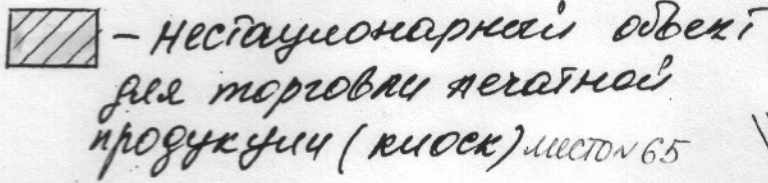 - нестационарный объект
для торговли печатной
продукции (киоск) место N 65